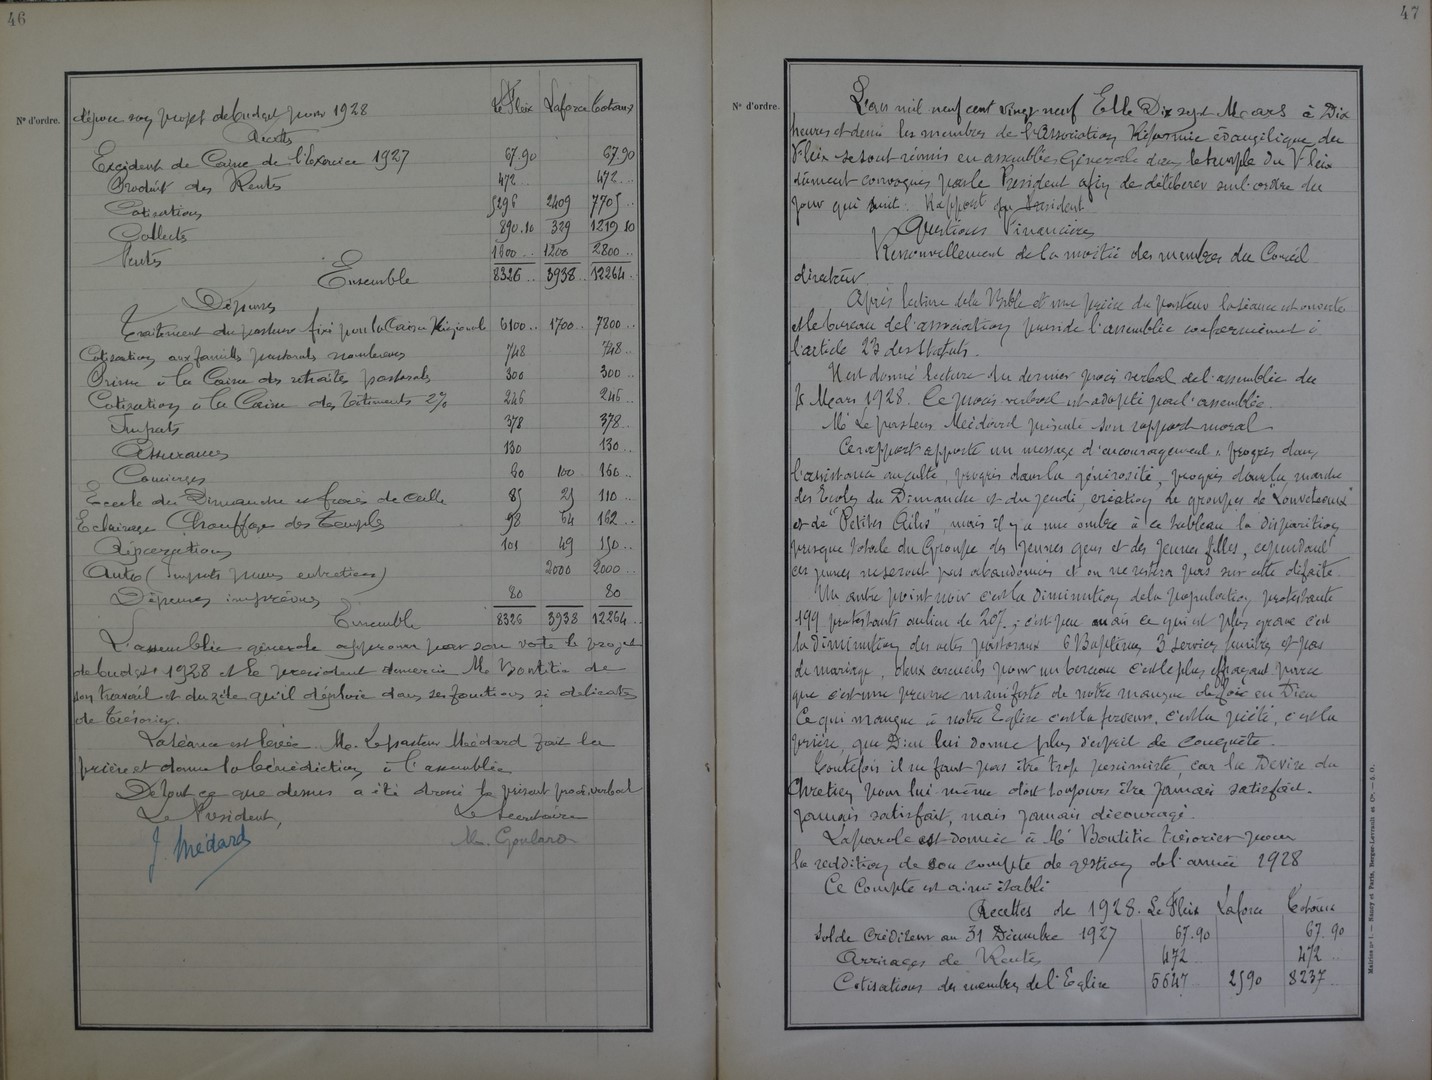 46
Nº d'ordre.
dépose son projet de budget pour 1928 Le Fleix Laforce Totaux
Recettes
Excédent de Caisse de l'Exercice 1927 67.90 67.90
Produit des Rentes 472 472
Cotisations 5296 2409 7705
Collectes 890.10 329 1219 10
Ventes 1600 1200 2800
Ensemble 8326 3938 12264
Dépenses
Traitement du pasteur fixé par la Caisse Régionale 6100 1700 7800
Cotisation aux familles pastorales nombreuses 748 748
Prime à la Caisse des retraites pastorales 300 300
Cotisation à la Caisse des Bâtiments 2% 246 246
Impots 378 378
Assurances 130 130
Concierges 60 100 160
Ecole du Dimanche et frais de culte 85 25 110
Eclairage Chauffage des Temples 98 64 162
Réparations 101 49 150
Auto (Impots pneus entretien) 2000 2000
Dépenses imprévues 80 80
Ensemble 8326 3938 12264
L'assemblée générale approuve par son vote le projet
de budget 1928 et le president remercie Mr Bontitie de
son travail et du zèle qu'il déploie dans ses fonctions si delicates
de trésorier.
La séance est levée. Mr. Le pasteur Médard fait la
prière et donne la bénédiction à l'assemblée
De tout ce que dessus a été dressé le présent procès verbal
Le President, Le Secretaire
J. Médard
47
Nº d'ordre.
L'an mil neuf cent vingt neuf Et le Dix sept Mars à Dix
heures et demi les membres de l'Association Réformée évangélique du
Fleix se sont réunis en assemblée Générale dans le temple du Fleix
dûment convoqués par le President afin de délibérer sur l'ordre du
jour qui suit. Rapport du President
Questions Financières
Renouvellement de la moitié des membres du Conseil
directeur
Après lecture de la Bible et une prière du pasteur la séance est ouverte
et le bureau de l'association preside l'assemblée conformément à
l'article 23 des Statuts.
Il est donné lecture du dernier procès verbal de l'assemblée du
Mars 1928. Ce procès verbal est adopté par l'assemblée.
Mr Le pasteur Médard présente son rapport moral
Ce rapport apporte un message d'encouragement, progrès dans
l'assistance au culte, progrès dans la générosité, progrès dans la marche
des Ecoles du Dimanche et du jeudi, création de groupes de "Louveteaux"
et de "Petites Ailes", mais il y a une ombre à ce tableau la disparition
presque totale du Groupe des jeunes gens et des jeunes filles, cependant
ces jeunes ne seront pas abandonnés et on ne restera pas sur cette défaite.
Un autre point noir c'est la diminution de la population protestante
199 protestants au lieu de 207, c'est peu mais ce qui est plus grave c'est
la diminution des actes pastoraux 6 Baptêmes 3 Services funèbres et pas
de mariage, deux cercueils pour un berceau c'est le plus effrayant parce
que c'est une preuve manifeste de notre manque de foi en Dieu
Ce qui manque à notre Eglise c'est la ferveur, c'est la piété, c'est la
prière, que Dieu lui donne plus d'esprit de conquête.
Toutefois il ne faut pas être trop pessimiste, car la Devise du
Chretien pour lui même doit toujours être jamais satisfait.
Jamais satisfait, mais jamais découragé.
La parole est donnée à Mr Bontitie trésorier pour
la reddition de son compte de gestion de l'année 1928
Ce Compte est ainsi établi
Recettes de 1928. Le Fleix Laforce Totaux
Solde Créditeur au 31 Décembre 1927 67.90 67.90
Arrérages de Rentes 472 472
Cotisations des membres de l'Eglise 5647 2590 8237
Mairies nº 1. — Nancy et Paris, Berger-Levrault et Cie. — S. O.